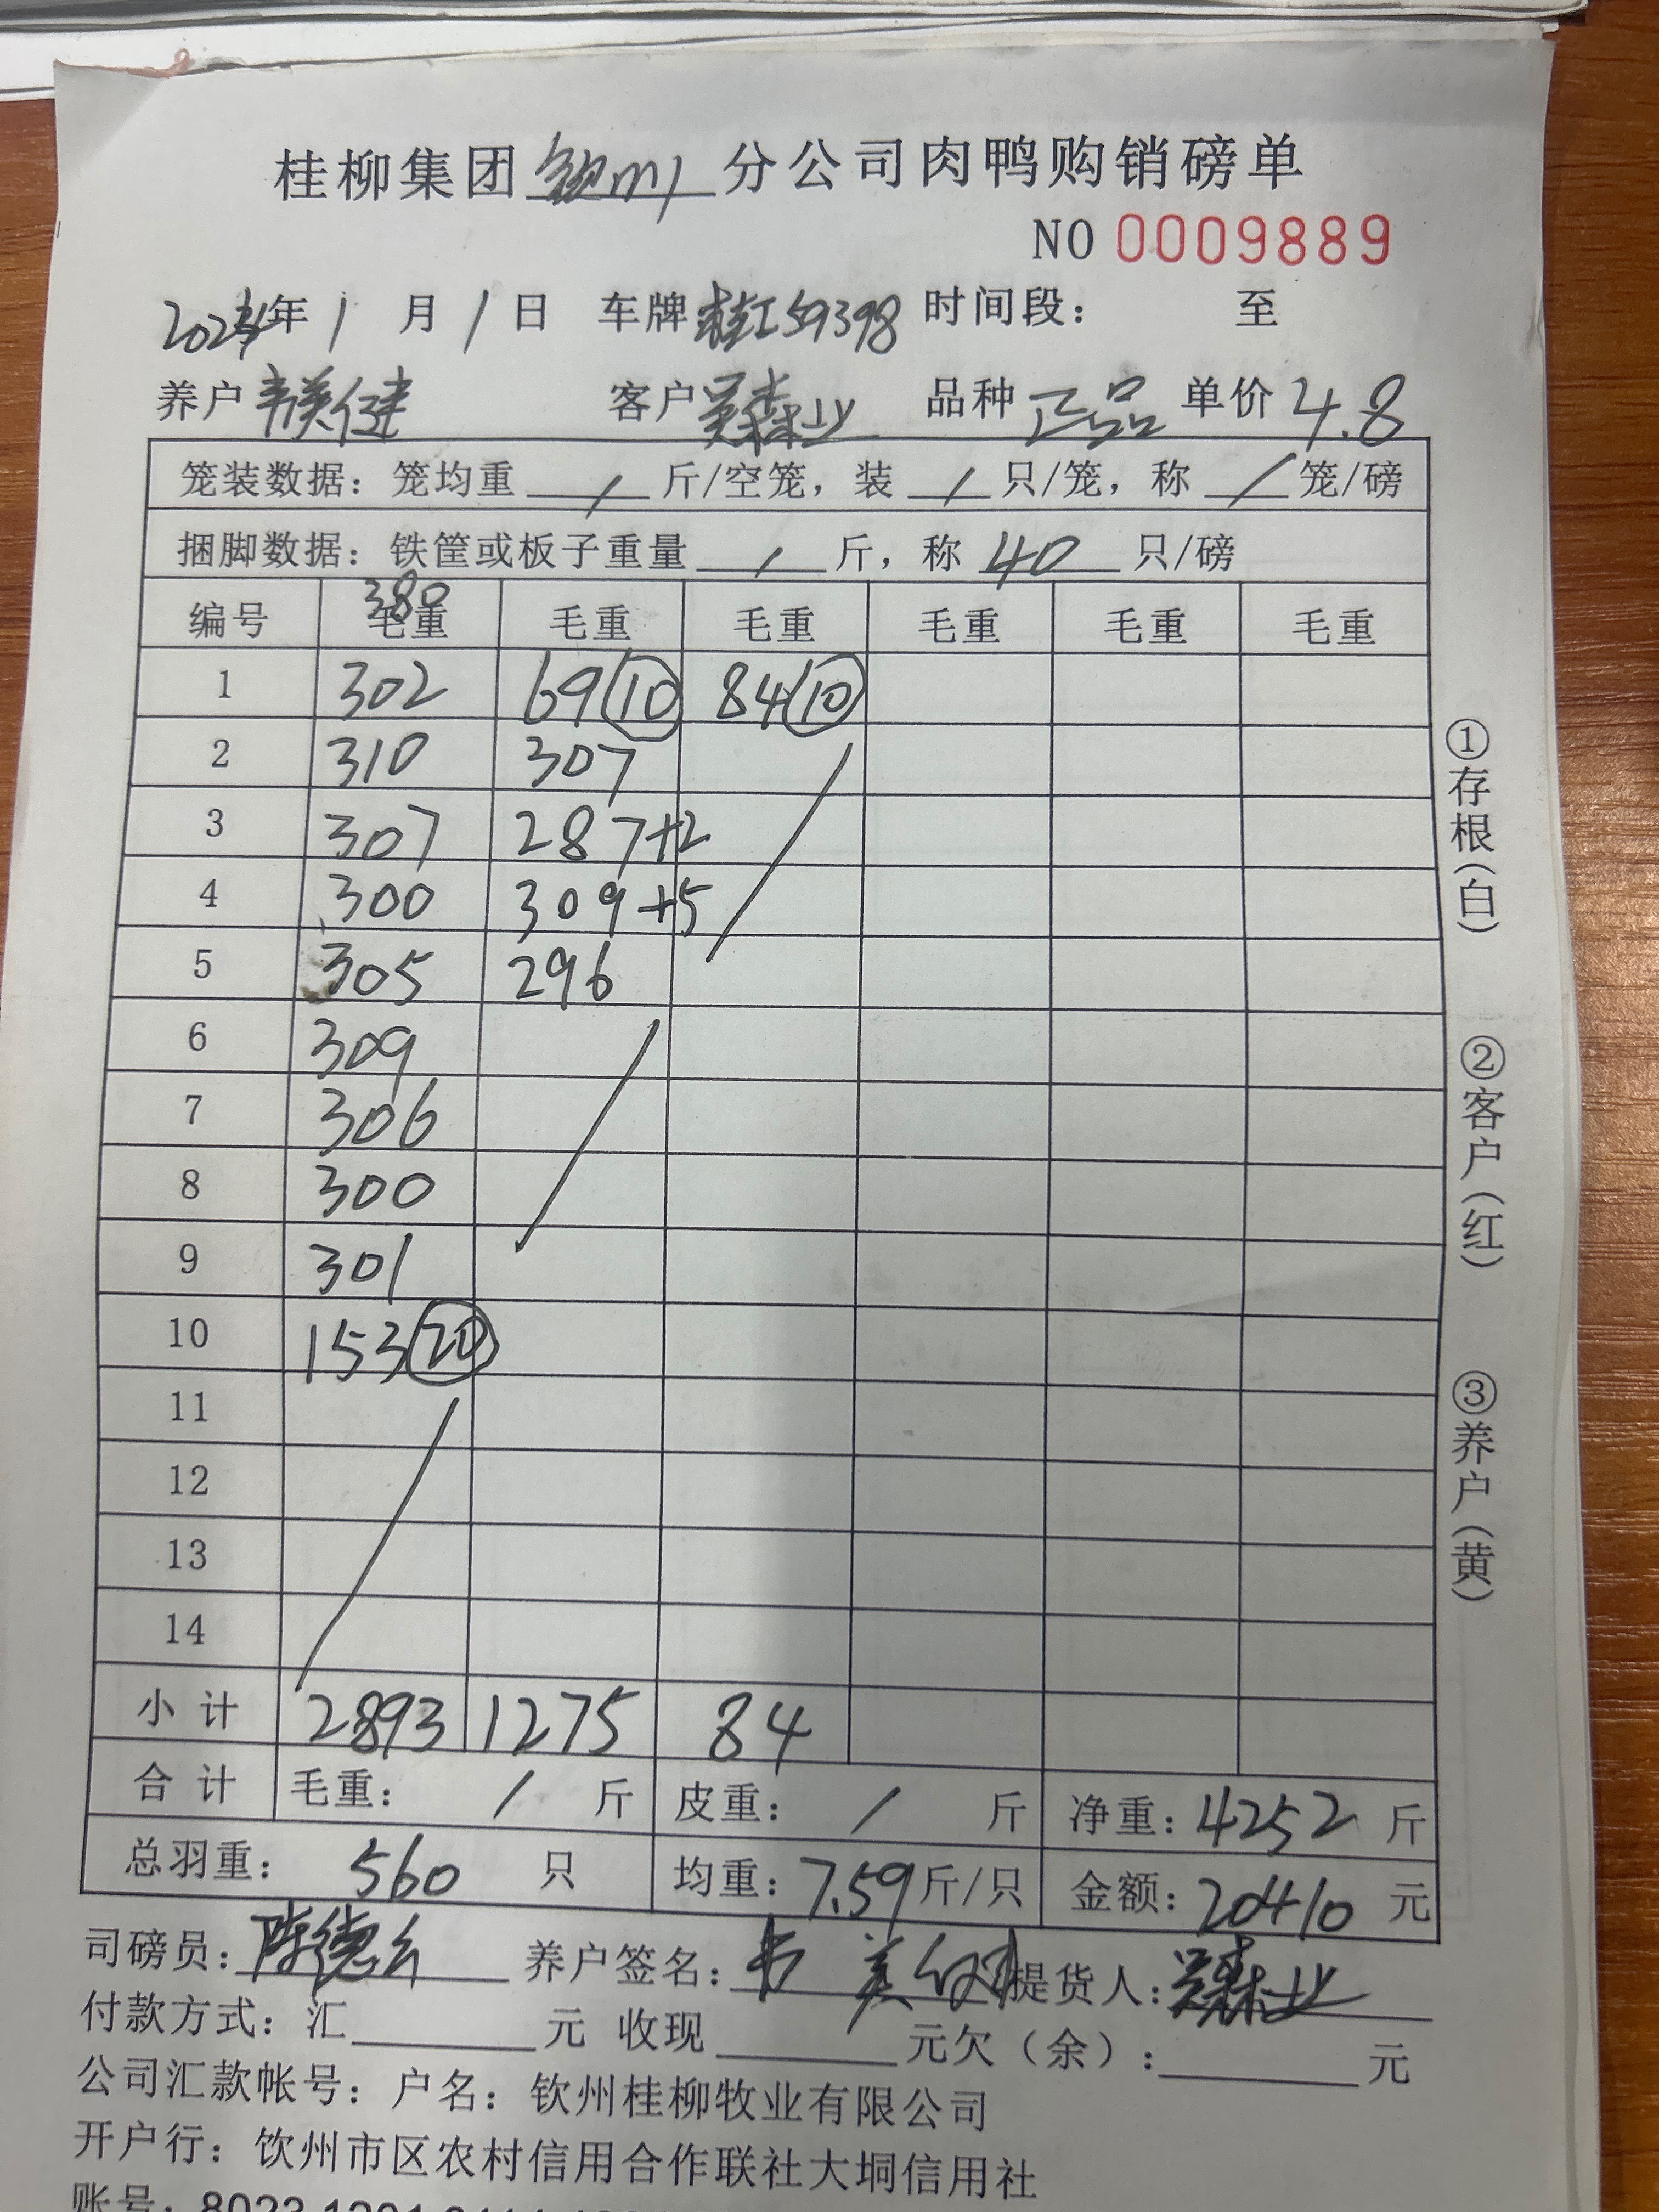 桂柳集团钦州分公司肉鸭购销磅单
NO 0009889
年1月1日 车牌桂L59398 时间段： 至
养户韦美健 客户吴森业 品种正品 单价4.8
笼装数据：笼均重 / 斤/空笼，装 / 只/笼，称 / 笼/磅
捆脚数据：铁筐或板子重量 / 斤，称 40 只/磅
380
编号 毛重 毛重 毛重 毛重 毛重 毛重
1 302 69(10) 84(10)
2 310 307
3 307 287+2
4 300 309+5
5 305 296
6 309
7 306
8 300
9 301
10 153(20)
11
12
13
14
小计 2893 1275 84
合计 毛重： / 斤 皮重： / 斤 净重：4252 斤
总羽重： 560 只 均重：7.59斤/只 金额：20410 元
司磅员：陈德 养户签名：韦美健 提货人：吴森业
付款方式：汇 元 收现 元欠（余）： 元
公司汇款帐号：户名：钦州桂柳牧业有限公司
开户行：钦州市区农村信用合作联社大垌信用社
账号：8023
①存根（白）
②客户（红）
③养户（黄）